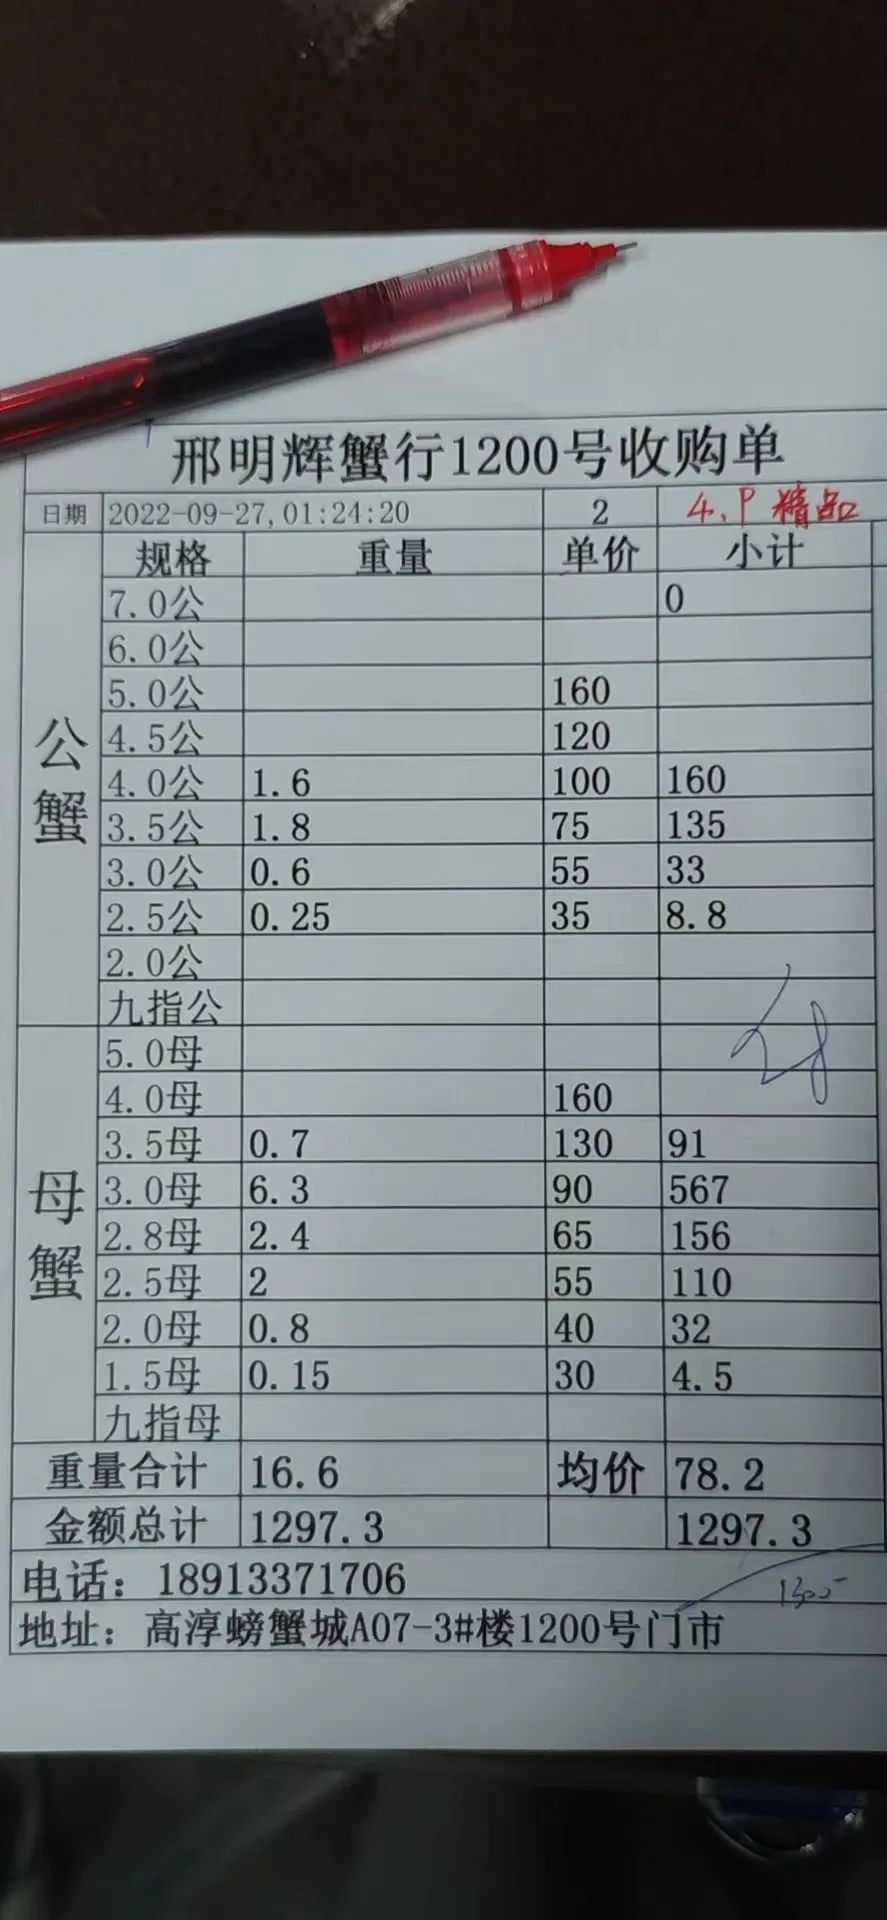 邢明辉蟹行1200号收购单
日期 2022-09-27,01:24:20 2 4.P 精品
规格 重量 单价 小计
公蟹
7.0公 0
6.0公
5.0公 160
4.5公 120
4.0公 1.6 100 160
3.5公 1.8 75 135
3.0公 0.6 55 33
2.5公 0.25 35 8.8
2.0公
九指公
母蟹
5.0母
4.0母 160
3.5母 0.7 130 91
3.0母 6.3 90 567
2.8母 2.4 65 156
2.5母 2 55 110
2.0母 0.8 40 32
1.5母 0.15 30 4.5
九指母
重量合计 16.6 均价 78.2
金额总计 1297.3 1297.3
电话：18913371706
地址：高淳螃蟹城A07-3#楼1200号门市